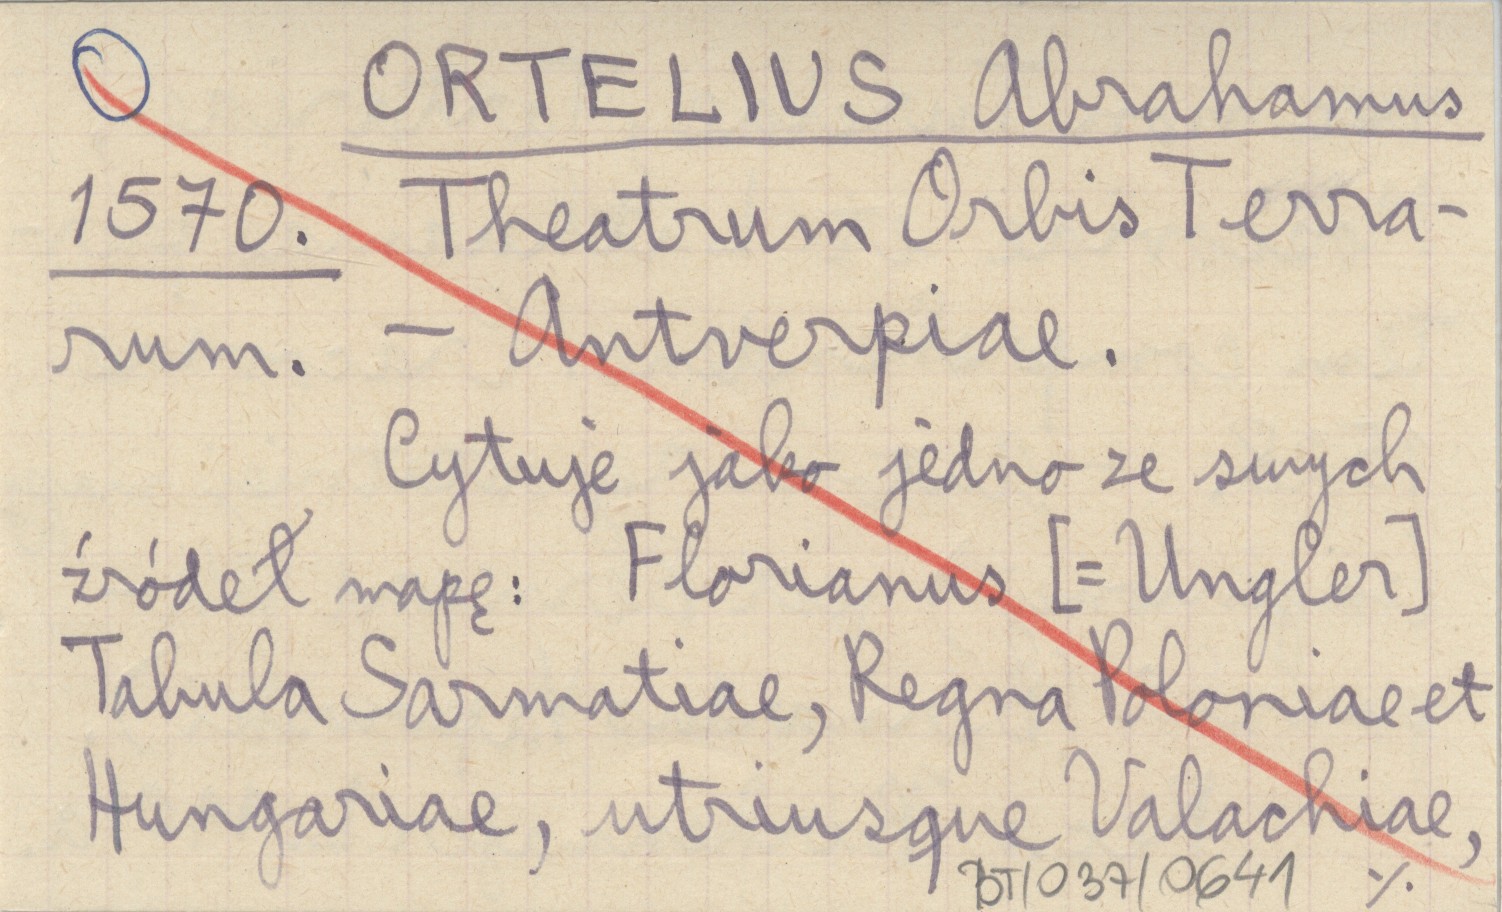 ORTELIUS Abrahamus
1570. Theatrum Orbis Terra-
rum. - Antverpiae.
Cytuje jako jedno ze swych
źródeł mapę: Florianus [= Ungler]
Tabula Sarmatiae, Regna Poloniae et
Hungariae, utriusque Valachiae,
BT/037/0641 ./.